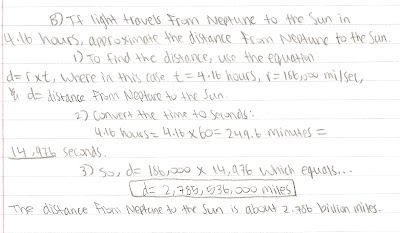 B) If light travels from Neptune to the Sun in
4.16 hours, approximate the distance from Neptune to the Sun.
1) To find the distance, use the equation
d= r x t, where in this case t = 4.16 hours, r= 186,000 mi/sec,
& d= distance from Neptune to the Sun.
2) Convert the time to seconds:
4.16 hours = 4.16 x 60 = 249.6 minutes =
14,976 seconds.
3) So, d= 186,000 x 14,976 which equals...
d= 2,785,536,000 miles
The distance from Neptune to the Sun is about 2.786 billion miles.